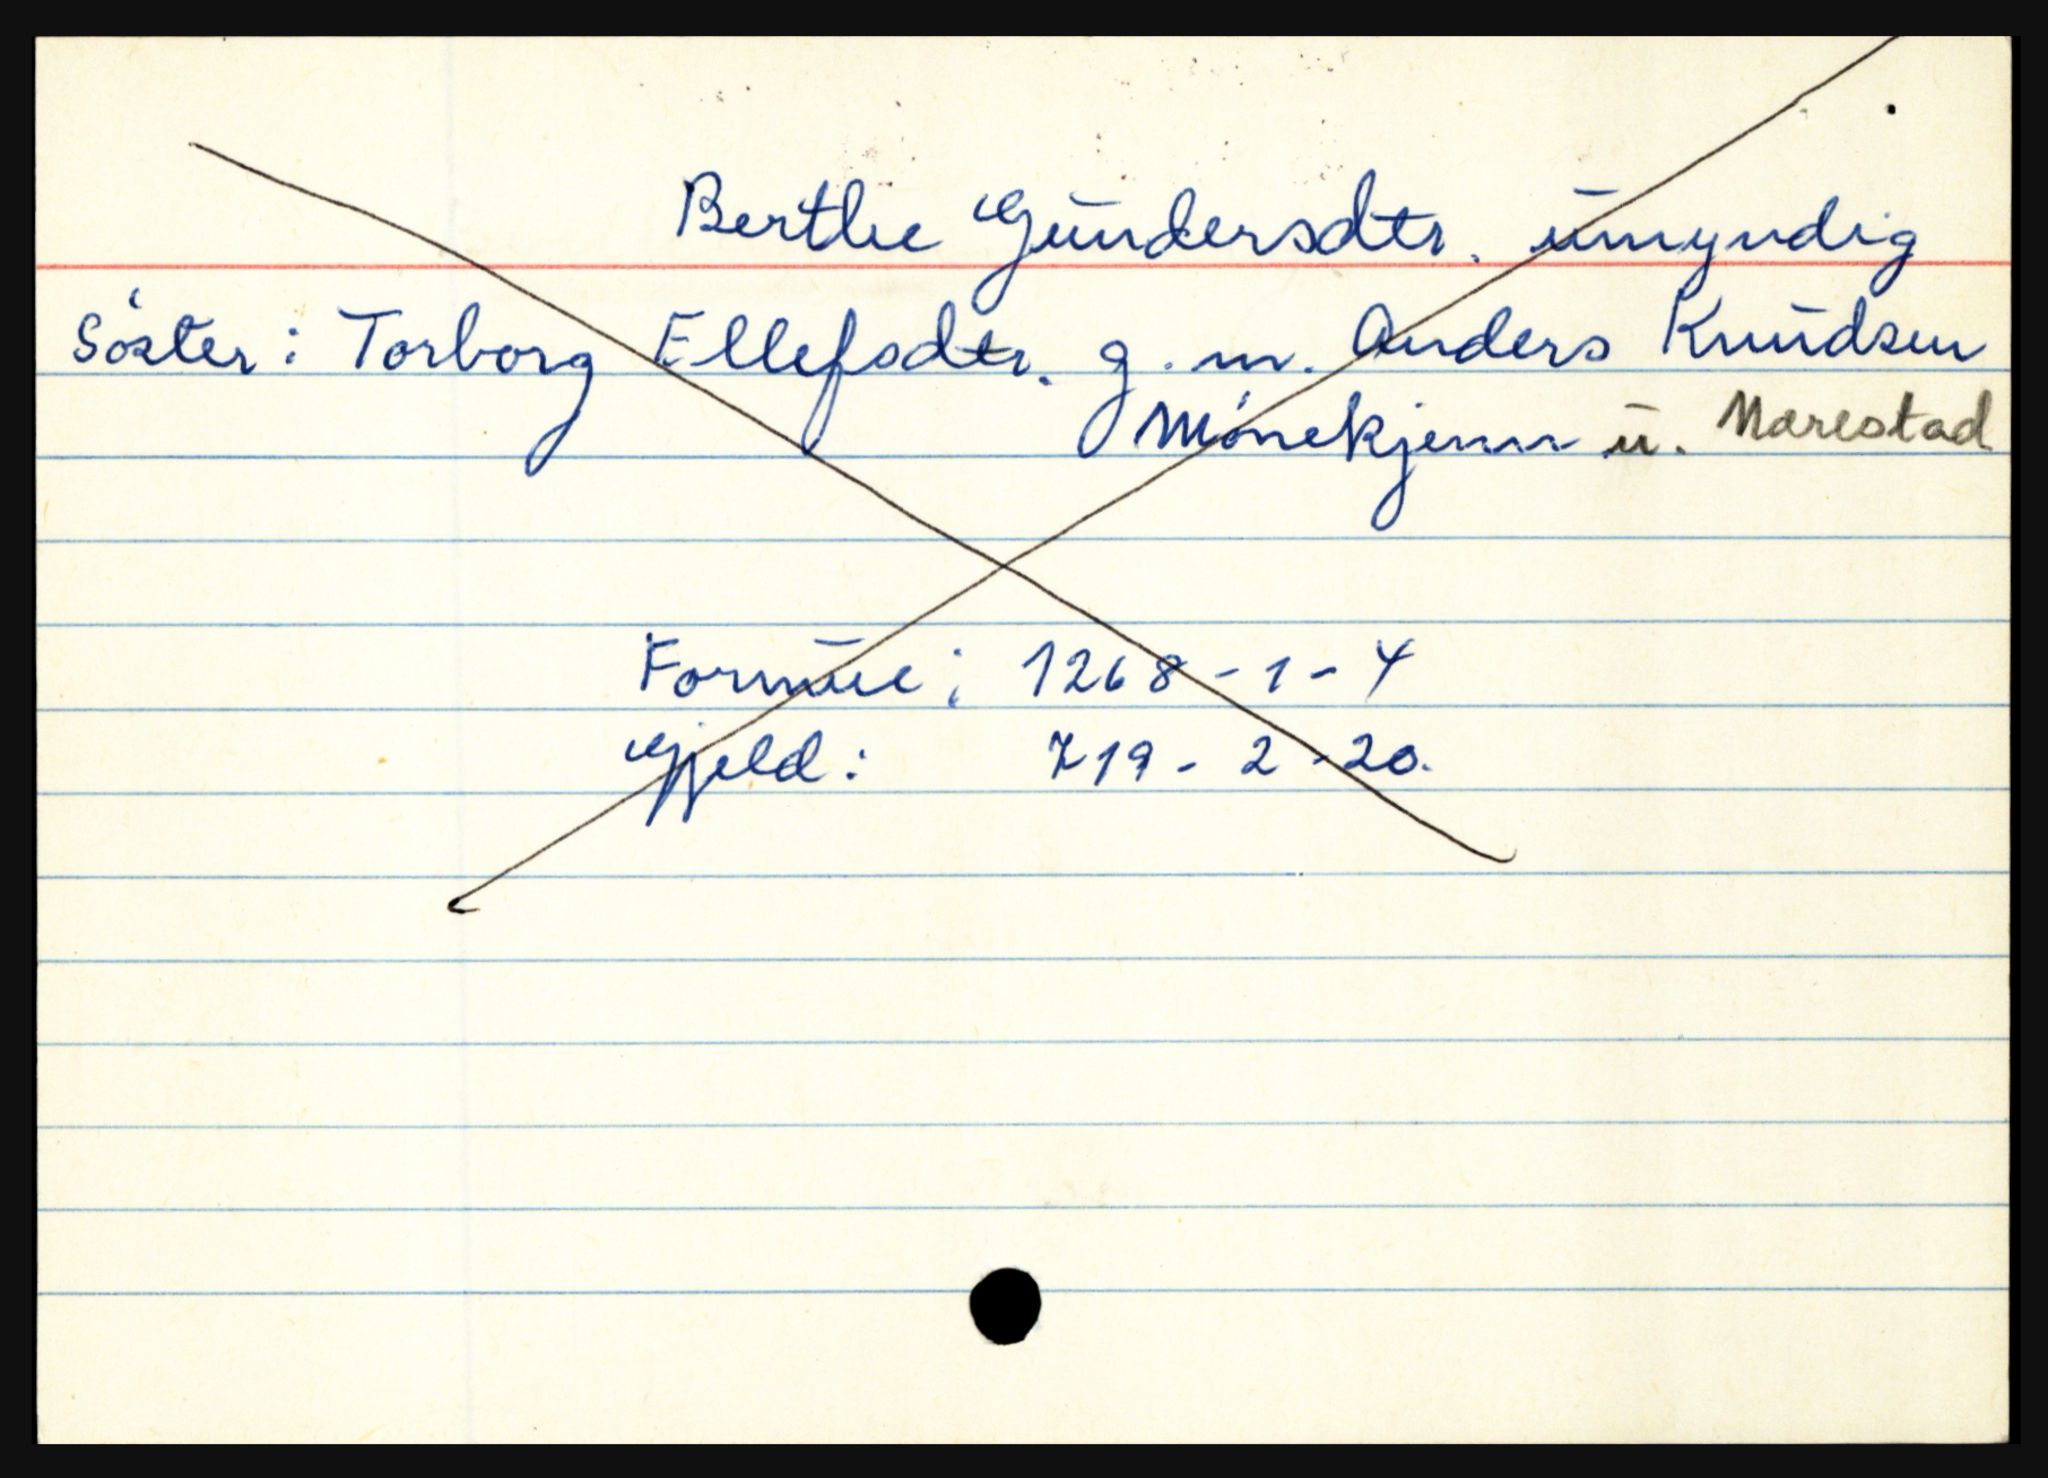 Berthe Gundersdtr. umyndig
Søster: Torborg Ellefsdtr. g. m. Anders Knudsen
Mønekjenn u. Marestad
Formue: 1268-1-4
Gjeld: 719-2-20.